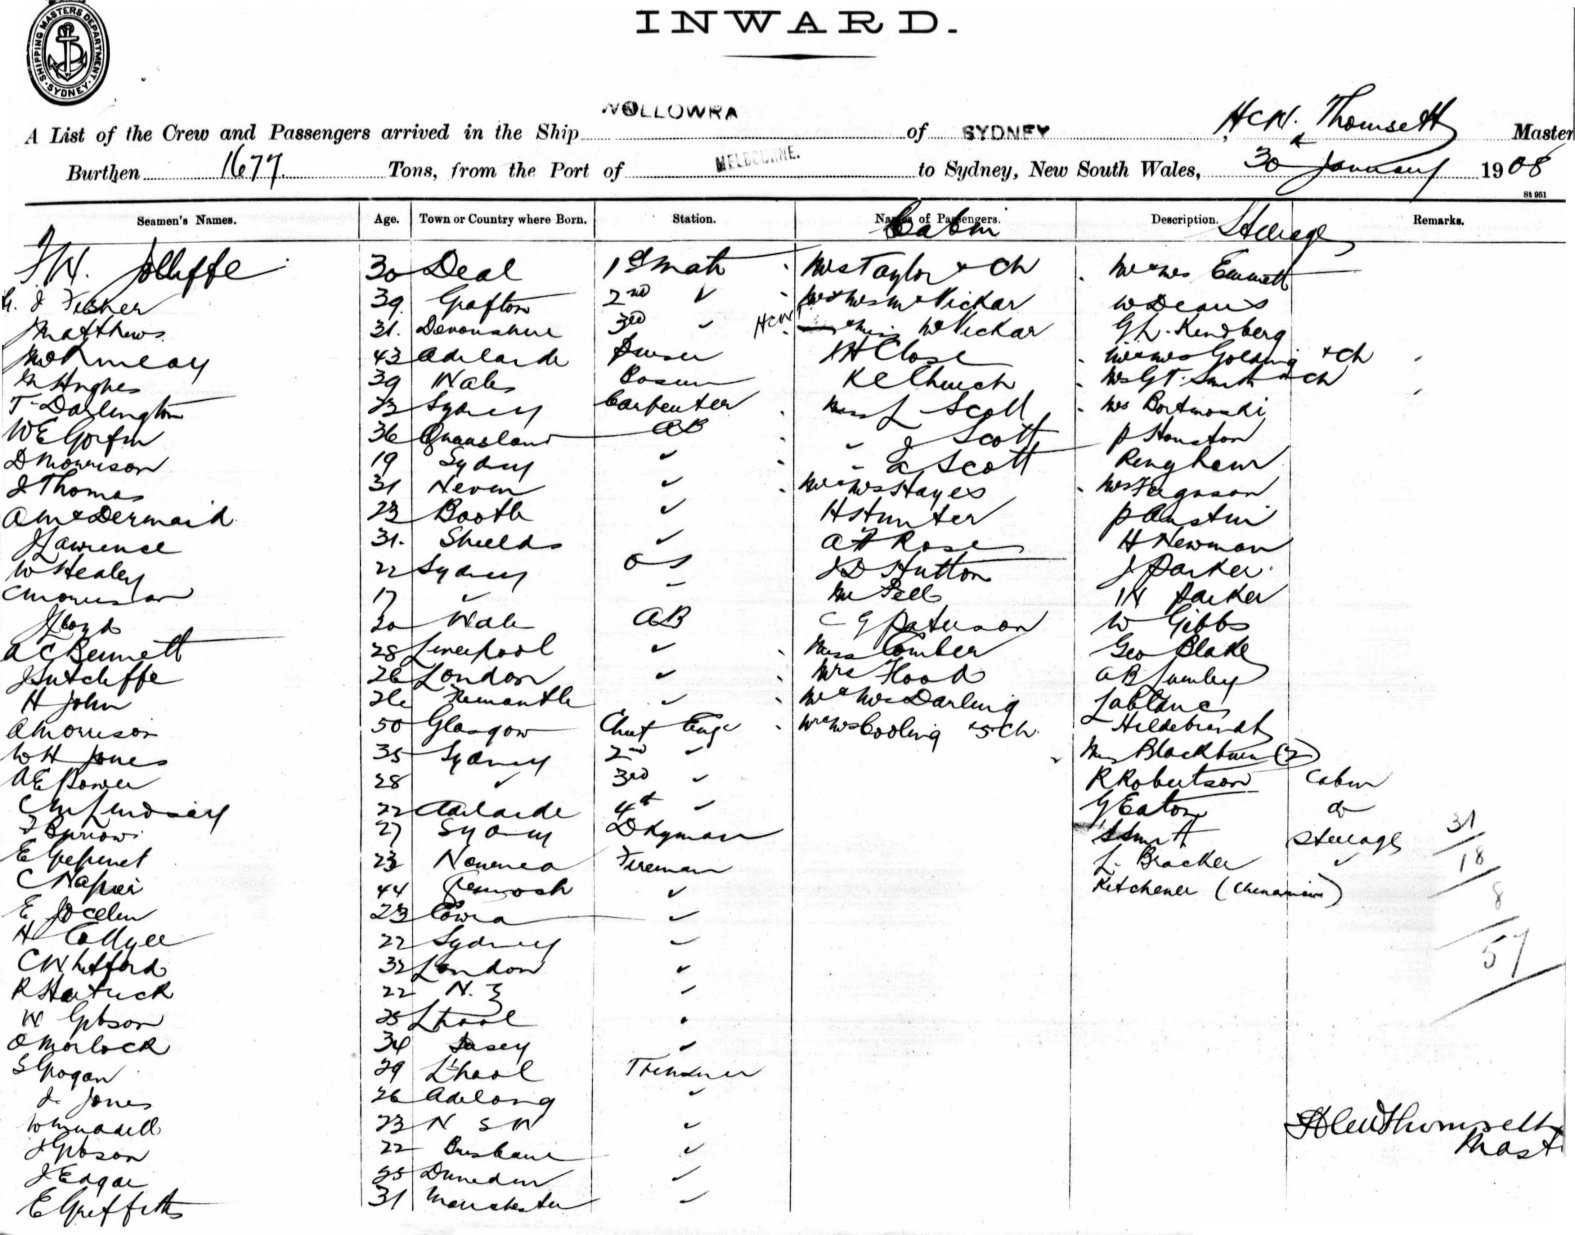 SHIPPING MASTERS DEPARTMENT SYDNEY
INWARD.
A List of the Crew and Passengers arrived in the Ship WOLLOWRA of SYDNEY HCW. Thomsett Master
Burthen 1677. Tons, from the Port of MELBOURNE. to Sydney, New South Wales, 30 January 1908
St 951
Seamen's Names. Age. Town or Country where Born. Station. Names of Passengers. Cabin Description. Steerage Remarks.
Jolliffe 30 Deal 1st mate Mrs Taylor & Ch Mr & Mrs Emmett
Fisher 39 Grafton 2nd Mr & Mrs McVickar W Deans
J Matthews 31. Devonshire 3rd HCWT Miss McVickar G L. Kindberg
43 Adelaide Purser H Close Mr & Mrs Golding & Ch
Hughes 39 Wales Bosun K E Church Mrs G T. Smith & Ch
T Darlington 23 Sydney Carpenter Miss L Scott Mrs
W E 36 Queensland AB J Scott P Houston
D Morrison 19 Sydney Scott
J Thomas 31 Mr & Mrs Hayes Mrs Ferguson
A McDermaid 23 Bootle H Hunter P Austin
J Lawrence 31. Shields A H Rose H Newman
W Healey 22 Sydney OS J D Hutton J Parker
C Morrison 17 Mr Fell W Parker
J Lloyd 20 Wales AB C G Paterson W Gibbs
A C Bennett 28 Liverpool Miss Comber Geo Blake
J Sutcliffe 26 London Mrs Flood A B Lumley
H John 26 Fremantle Mr & Mrs Darling Lablanc
A Morrison 50 Glasgow Chief Engr Mr & Mrs Cooling & 5 Ch Hildebrandt
W H Jones 35 Sydney 2nd Mrs Blackburn (2)
A E Bower 28 3rd R Robertson Cabin
C M Lindsay 22 Adelaide 4th G Eaton do
J Burrows 27 Sydney Dkyman Smith Steerage 31
E 23 Noumea Fireman L. Bracker 18
C Napier 44 Greenock Kitchener (Chinaman) 8
E Jocelyn 23 Cowra
H 22 Sydney 57
C Whitford 32 London
R 22 N. Z
W Gibson 25 L'pool
O Morlock 34
S Grogan 29 L'pool Trimmer
J. Jones 26 Adelong
W 23 N S W HCW Thomsett
J Gibson 22 Brisbane Mast
J Edgar 25 Dunedin
E Griffiths 31 Manchester